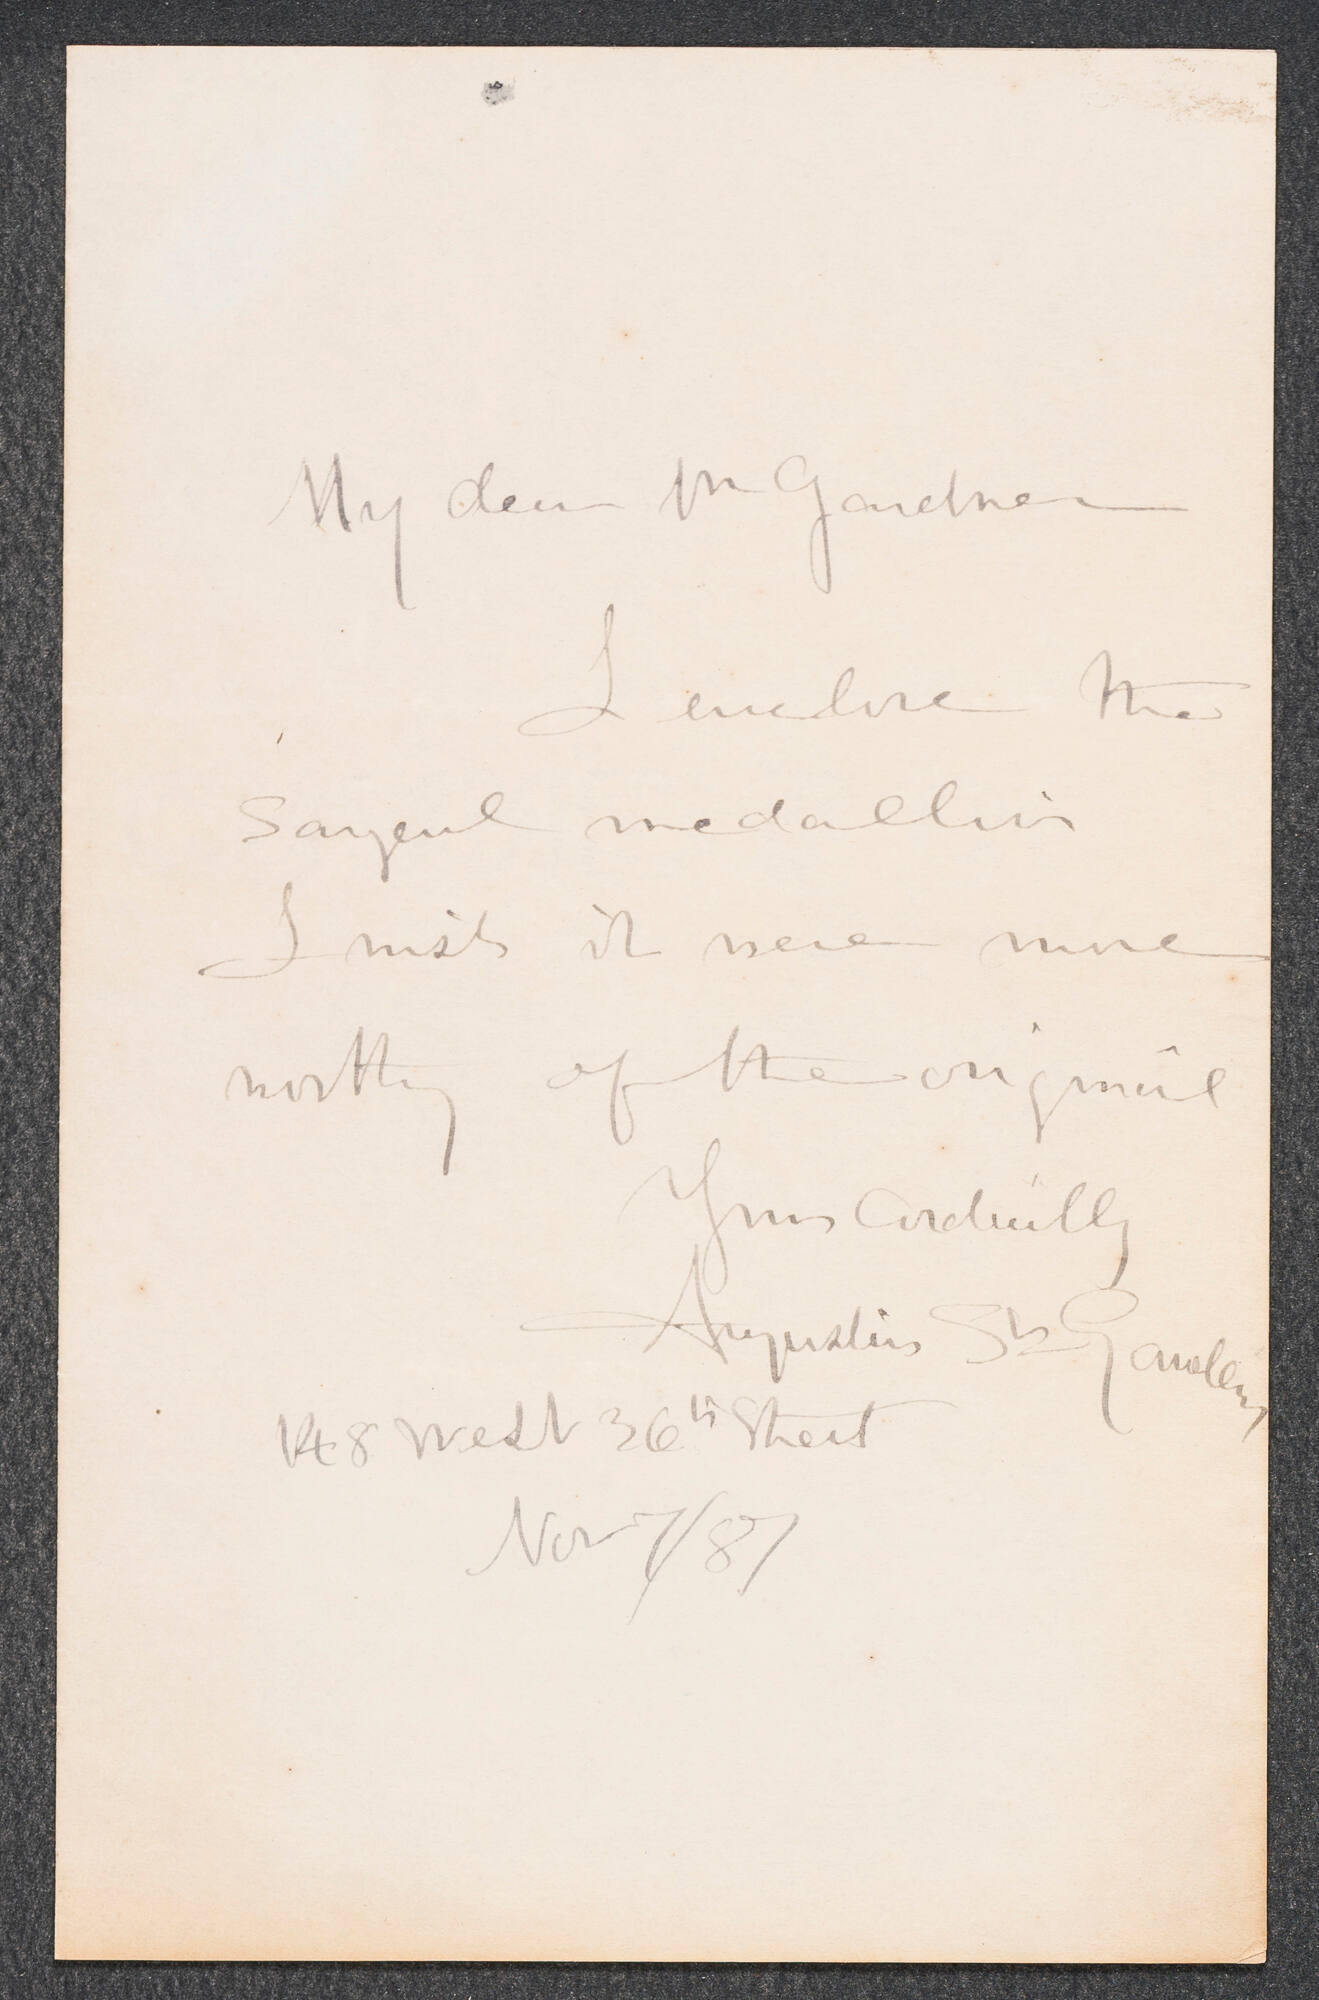 My dear Mr Gardner
I enclose the
Sargent medallion
I wish it were more
worthy of the original
Yours Cordially
Augustus St Gaudens
148 West 36th Street
Nov 7/87